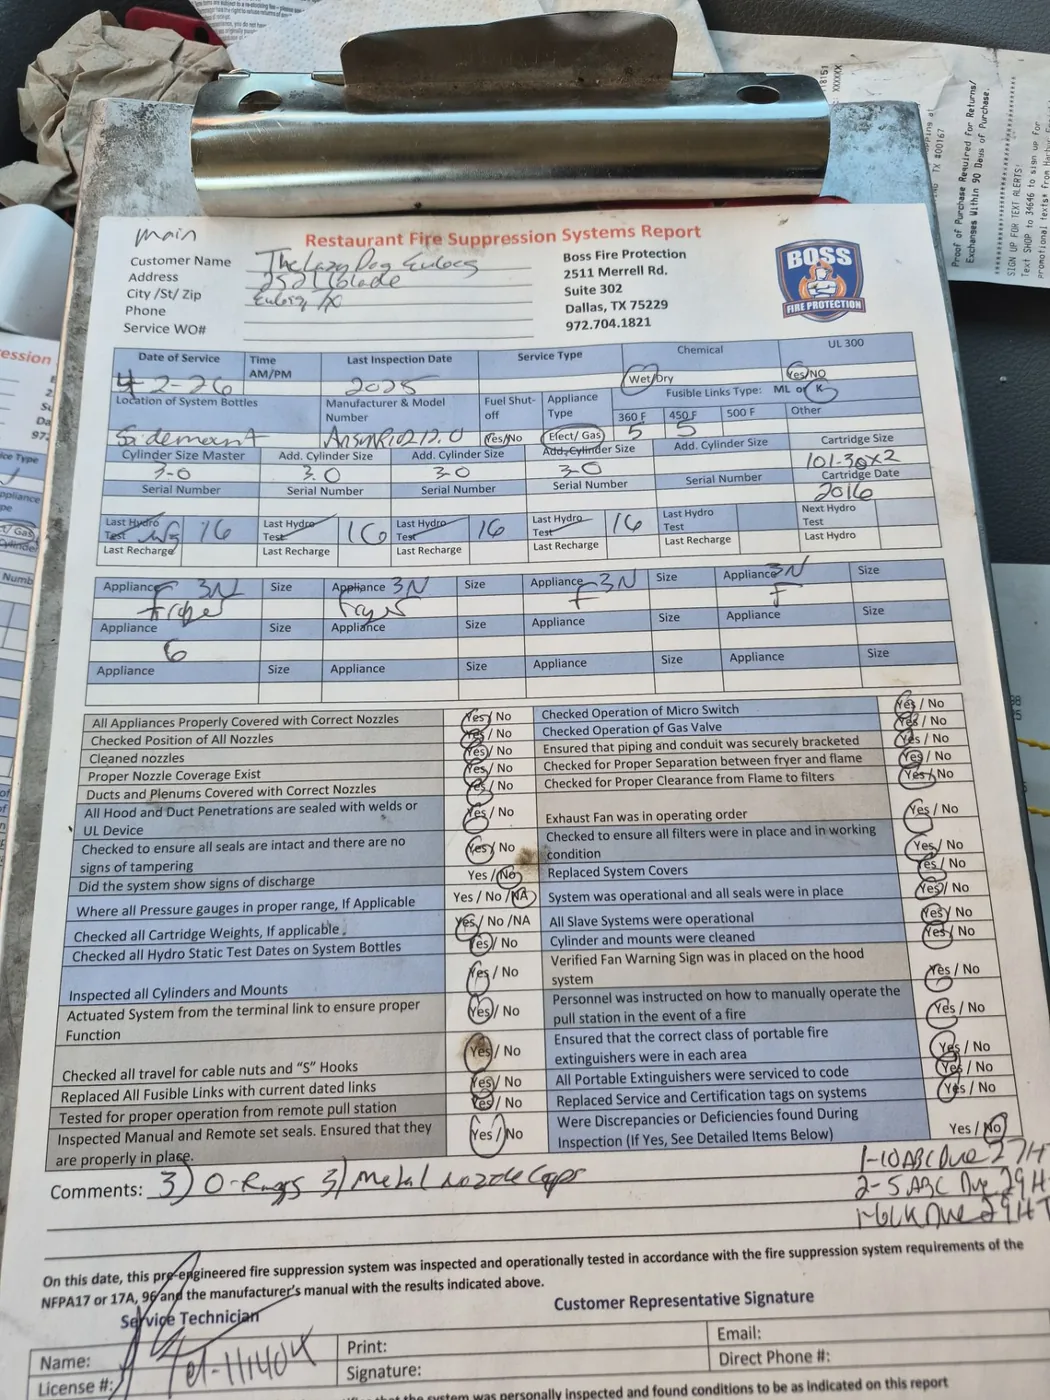 Proof of Purchase Required for Returns/
Exchanges Within 90 Days of Purchase.
SIGN UP FOR TEXT ALERTS!
Text SHOP to 34646 to sign up for
TX #00167
main
Restaurant Fire Suppression Systems Report
Customer Name The Lazy Dog Euless
Address
City /St/ Zip Euless TX
Phone
Service WO#
Boss Fire Protection
2511 Merrell Rd.
Suite 302
Dallas, TX 75229
972.704.1821
BOSS
FIRE PROTECTION
Date of Service 4-2-26 Time AM/PM Last Inspection Date 2025 Service Type Chemical Wet/Dry UL 300 Yes/NO
Location of System Bottles Sidemount Manufacturer & Model Number Fuel Shut-off Yes/No Appliance Type Elect/ Gas Fusible Links Type: ML or K
360 F 5 450 F 5 500 F Other
Cylinder Size Master 3.0 Add. Cylinder Size 3.0 Add. Cylinder Size 3.0 Add. Cylinder Size 3.0 Add. Cylinder Size Cartridge Size 101-30x2
Serial Number Serial Number Serial Number Serial Number Serial Number Cartridge Date 2016
Last Hydro Test 16 Last Hydro Test 16 Last Hydro Test 16 Last Hydro Test 16 Last Hydro Test Next Hydro Test
Last Recharge Last Recharge Last Recharge Last Recharge Last Recharge Last Hydro
Appliance 3N Size Appliance 3N Size Appliance 3N Size Appliance 3N Size
Fryer Fryer F F
Appliance Size Appliance Size Appliance Size Appliance Size
6
Appliance Size Appliance Size Appliance Size Appliance Size
All Appliances Properly Covered with Correct Nozzles Yes / No
Checked Position of All Nozzles Yes / No
Cleaned nozzles Yes / No
Proper Nozzle Coverage Exist Yes / No
Ducts and Plenums Covered with Correct Nozzles Yes / No
All Hood and Duct Penetrations are sealed with welds or
UL Device Yes / No
Checked to ensure all seals are intact and there are no
signs of tampering Yes / No
Did the system show signs of discharge Yes / No
Where all Pressure gauges in proper range, If Applicable Yes / No /NA
Checked all Cartridge Weights, If applicable. Yes / No /NA
Checked all Hydro Static Test Dates on System Bottles Yes / No
Inspected all Cylinders and Mounts Yes / No
Actuated System from the terminal link to ensure proper
Function Yes / No
Checked all travel for cable nuts and "S" Hooks Yes / No
Replaced All Fusible Links with current dated links Yes / No
Tested for proper operation from remote pull station Yes / No
Inspected Manual and Remote set seals. Ensured that they
are properly in place. Yes / No
Checked Operation of Micro Switch Yes / No
Checked Operation of Gas Valve Yes / No
Ensured that piping and conduit was securely bracketed Yes / No
Checked for Proper Separation between fryer and flame Yes / No
Checked for Proper Clearance from Flame to filters Yes / No
Exhaust Fan was in operating order Yes / No
Checked to ensure all filters were in place and in working
condition Yes / No
Replaced System Covers Yes / No
System was operational and all seals were in place Yes / No
All Slave Systems were operational Yes / No
Cylinder and mounts were cleaned Yes / No
Verified Fan Warning Sign was in placed on the hood
system Yes / No
Personnel was instructed on how to manually operate the
pull station in the event of a fire Yes / No
Ensured that the correct class of portable fire
extinguishers were in each area Yes / No
All Portable Extinguishers were serviced to code Yes / No
Replaced Service and Certification tags on systems Yes / No
Were Discrepancies or Deficiencies found During
Inspection (If Yes, See Detailed Items Below) Yes / No
Comments: 3) O-Rings 3) Metal Nozzle Caps
1-10 ABC Due 27 HT
2-5 ABC Due 29 H
1-6LK Due 29 HT
On this date, this pre-engineered fire suppression system was inspected and operationally tested in accordance with the fire suppression system requirements of the
NFPA17 or 17A, 96 and the manufacturer's manual with the results indicated above.
Service Technician
Customer Representative Signature
Name:
License #:
Print:
Signature:
Email:
Direct Phone #:
the system was personally inspected and found conditions to be as indicated on this report